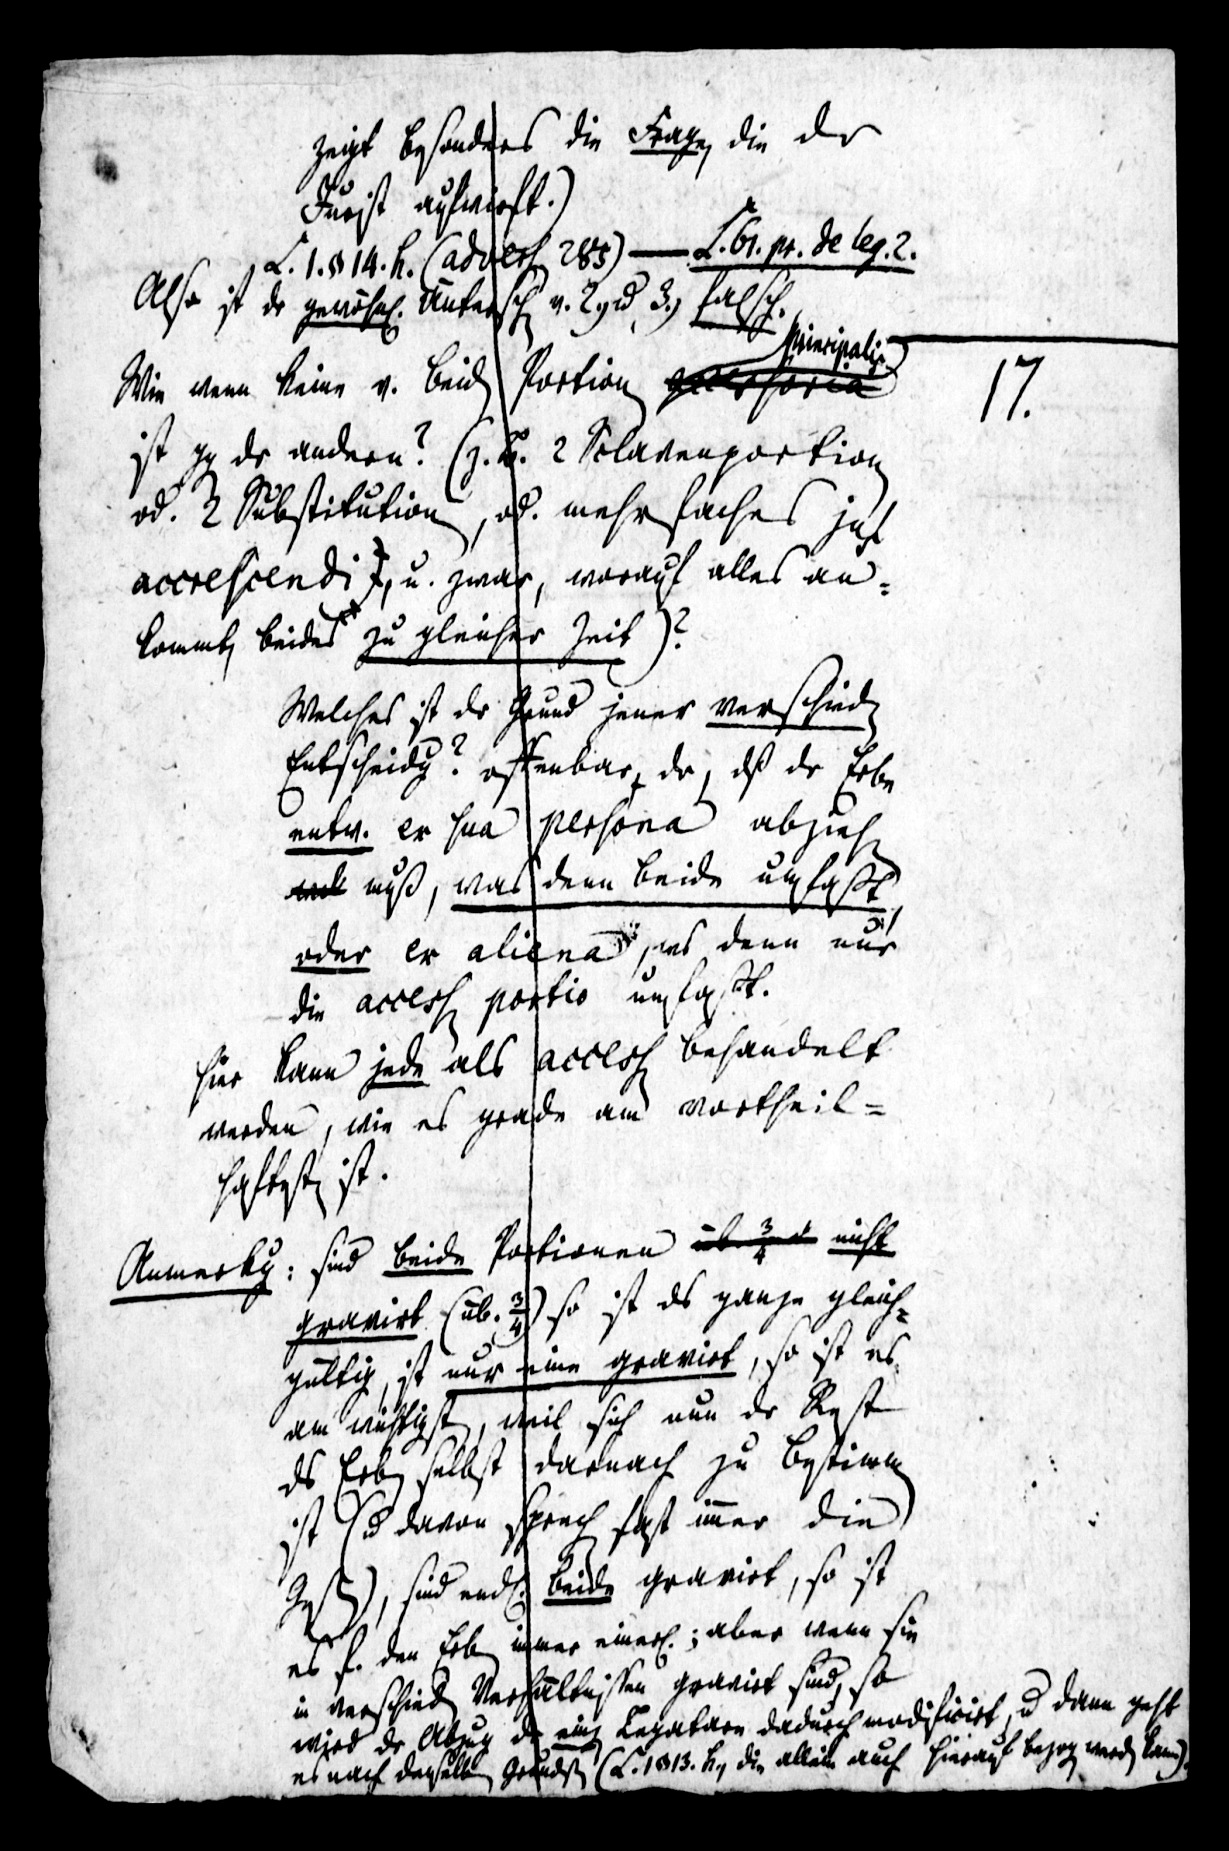 zeigt besonders die Frage, die dr
Jurist aufwirft.)
L. 1. § 14. h. (advers 285) — L. 61. pr. de leg. 2.
Also ist dr gewöhnl. Untersch v. 2, u 3, falsch.
principalis
Wie wenn keine v. beid Portion accessoria
17.
ist gg dr andern? (z. B. 2 Sclavenportion
od. 2 Substitution, od. mehrfaches jus
accrescendi), u. zwar, worauf alles an=
kommt, beides zu gleicher Zeit)?
Welches ist dr Grund jener verschied
Entscheidg? offenbar dr, dß dr Erbe
entw. ex sua persona abzieh
muß, was denn beide umfaßt,
oder ex aliena, ws denn nur
die access portio umfaßt.
hier kann jede als access behandelt
werden, wie es grade am vortheil=
haftest ist.
Anmerkg: sind beide Portionen üb. 3/4 nicht
gravirt (üb. 3/4) so ist ds ganze gleich=
gültig, ist nur eine gravirt, so ist es
am wichtigst, weil sich nun dr Rest
ds Erb selbst darnach zu bestimm
ist (u davon sprech fast immer die
Gesetz), sind endl. beide gravirt, so ist
es f. den Erb immer einerl.; aber wenn sie
in verschied Verhältnissen gravirt sind, so
wird dr Abzug dr einz Legatare dadurch modificirt, u dann geht
es nach denselb Grunds (L. 1 § 13. h., die allein auch hierauf bezog werd kann).